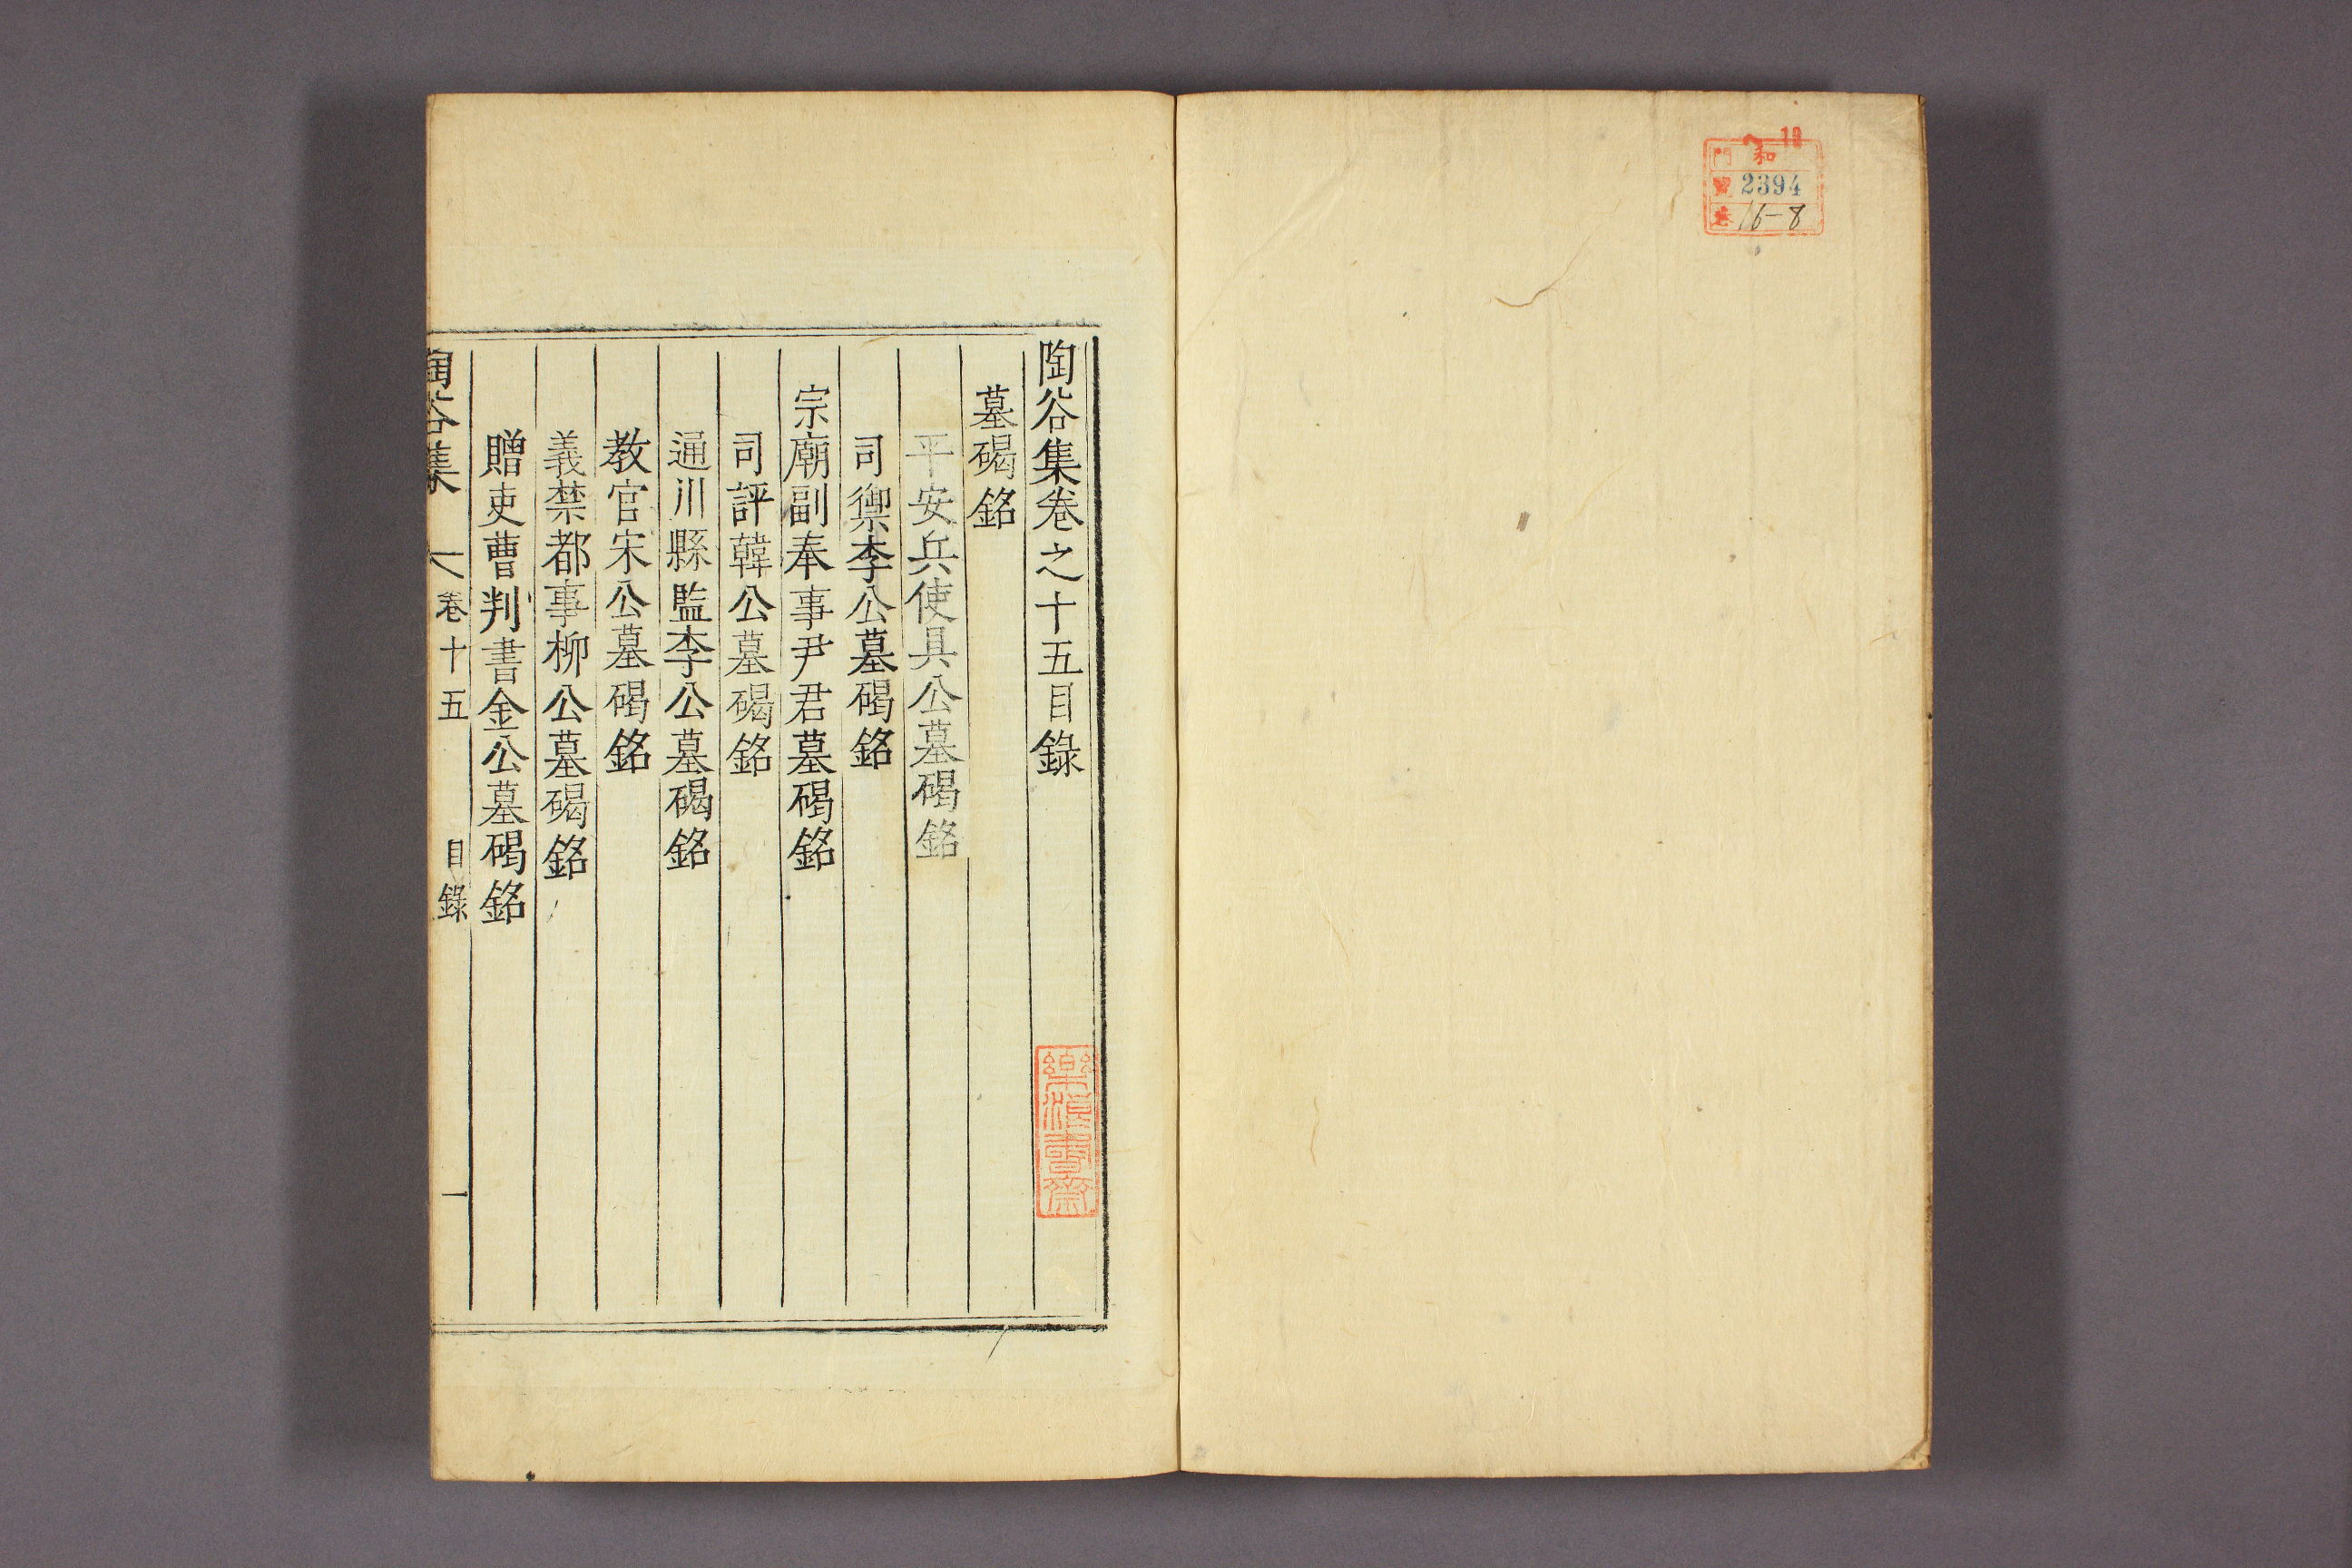 10
門 和
號 2394
卷 16-8
陶谷集卷之十五目錄
墓碣銘
平安兵使具公墓碣銘
司禦李公墓碣銘
宗廟副奉事尹君墓碣銘
司評韓公墓碣銘
通川縣監李公墓碣銘
教官宋公墓碣銘
義禁都事柳公墓碣銘
贈吏曹判書金公墓碣銘
陶谷集 卷十五 目錄 一